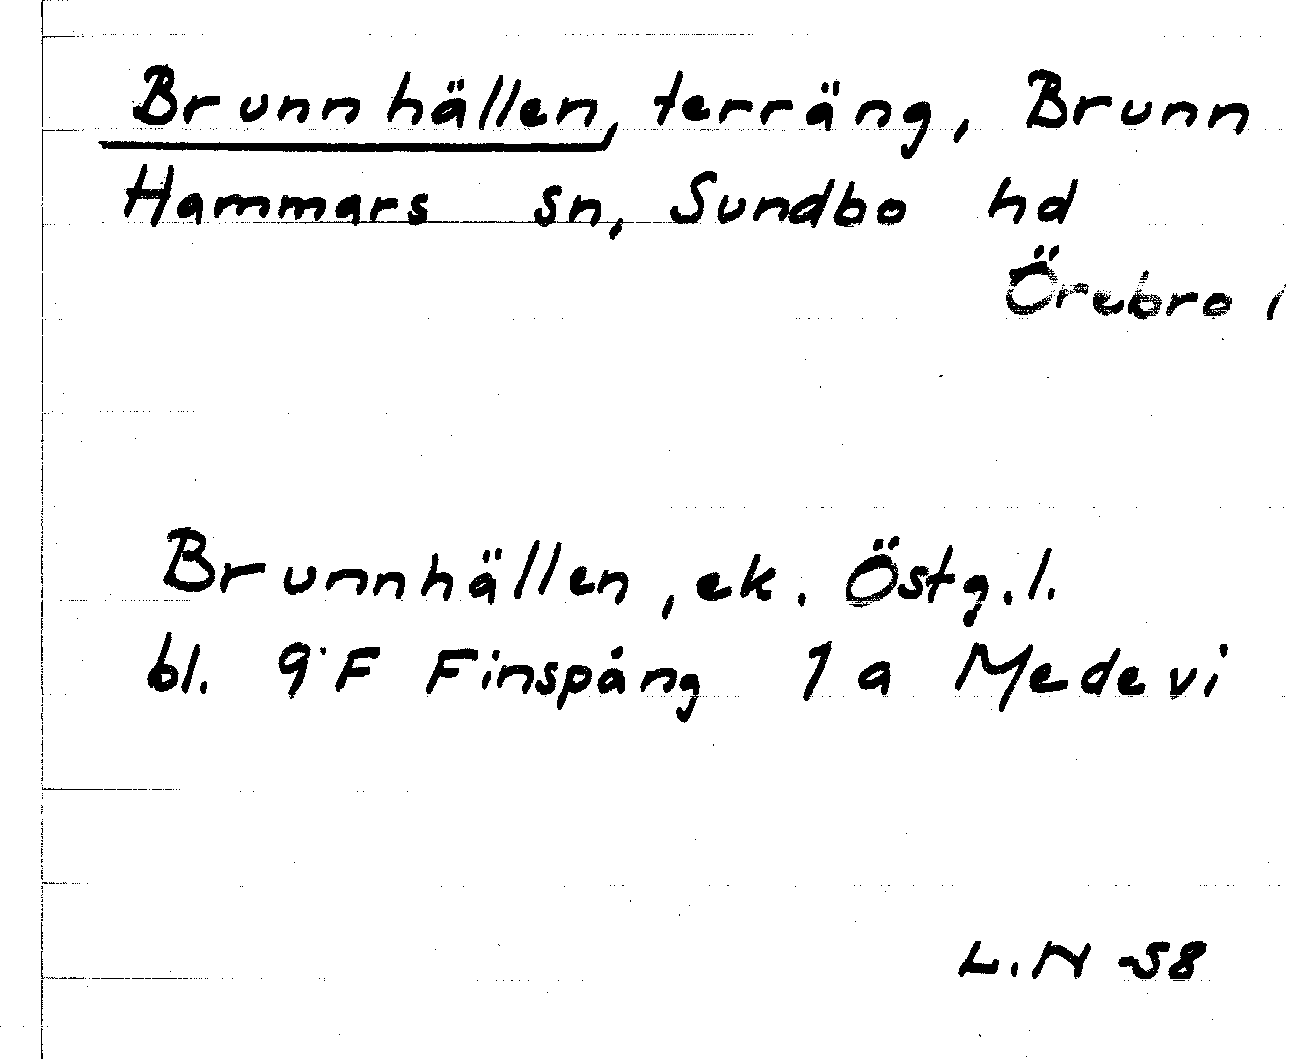 Brunnhällen, terräng, Brunn
Hammars sn, Sundbo hd
Örebro l
Brunnhällen, ek. Östg.l.
bl. 9 F Finspång 1 a Medevi
L.N -58